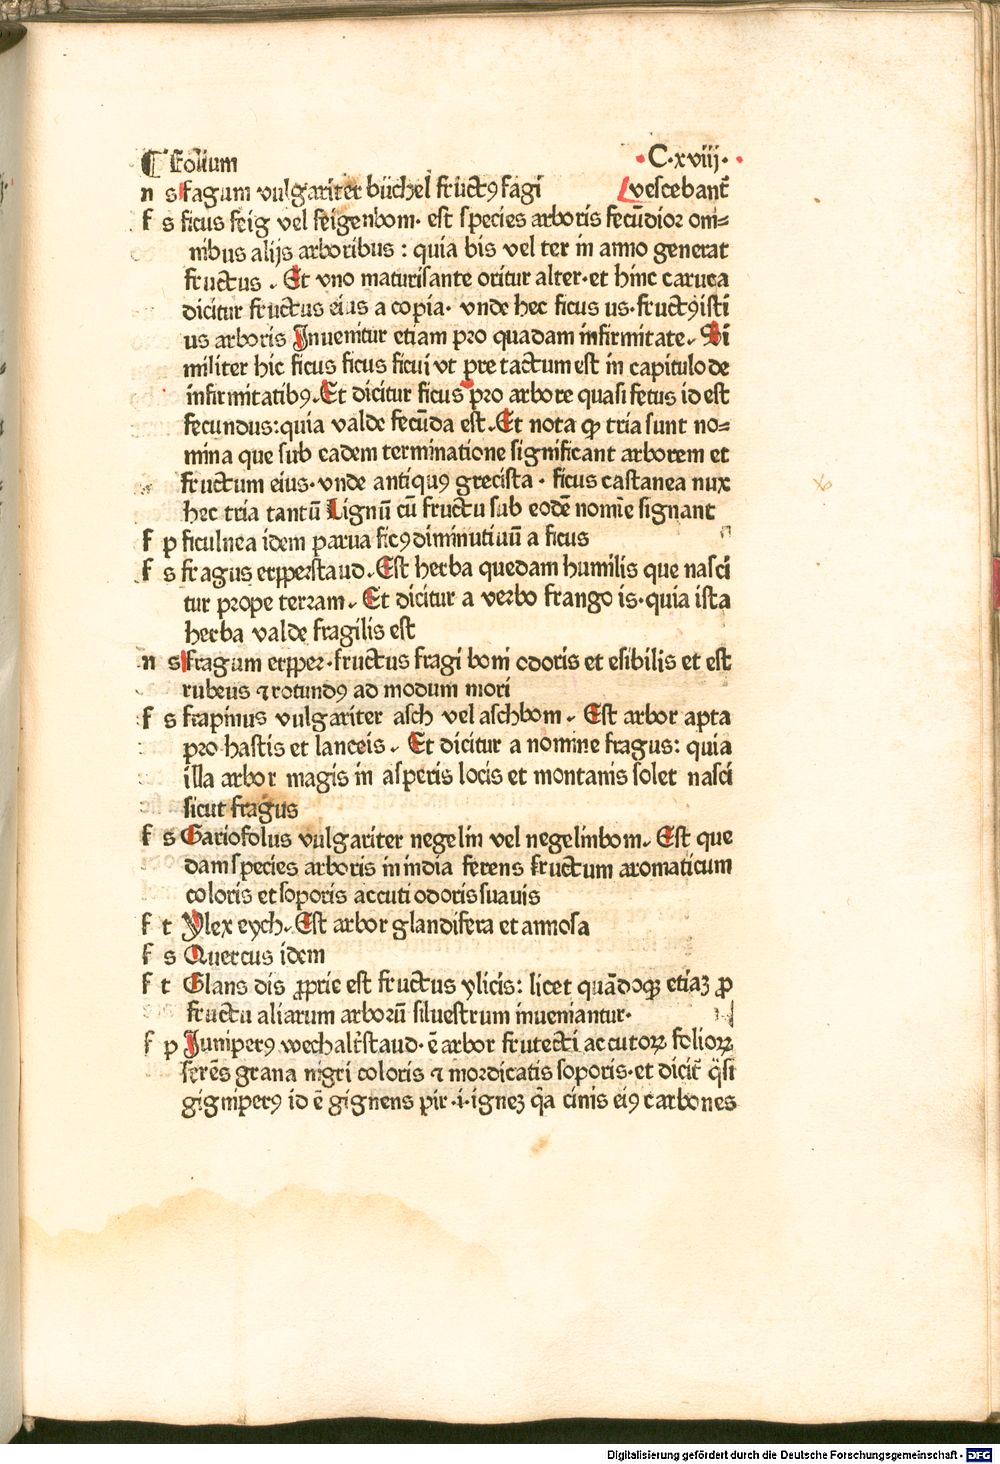 ¶ Folium C·xviij·
n s fagum vulgariter büchel fructꝰ fagi vescebant᷑
f s ficus feig vel feigenbom· est species arboris fecūdior om=
nibus alijs arboribus : quia bis vel ter in anno generat
fructus . Et vno maturisante oritur alter·et hinc caruca
dicitur fructus eius a copia· vnde hec ficus us·fructꝰisti
us arboris Inuenitur etiam pro quadam infirmitate. Si
militer hic ficus ficus ficui vt pre tactum est in capitulo de
infirmitatibꝰ.Et dicitur ficus pro arbore quasi fetus id est
fecundus:quia valde fecūda est.Et nota ꝙ tria sunt no=
mina que sub eadem terminatione significant arborem et
fructum eius·vnde antiquꝰ grecista · ficus castanea nux
hec tria tantū Lignū cū fructu sub eodē nomīe signant
f p ficulnea idem parua ficꝰdiminutiuū a ficus
f s fragus erpperstaud.Est herba quedam humilis que nasci
tur prope terram. Et dicitur a verbo frango is·quia ista
herba valde fragilis est
n s fragum erpper·fructus fragi boni odoris et esibilis et est
rubeus ⁊ rotundꝰ ad modum mori
f s frapinus vulgariter asch vel aschbom. Est arbor apta
pro hastis et lanceis. Et dicitur a nomine fragus: quia
illa arbor magis in asperis locis et montanis solet nasci
sicut fragus
f s Gariofolus vulgariter negelin vel negelinbom. Est que
dam species arboris in india ferens fructum aromaticum
coloris et soporis accuti odoris suauis
f t Ylex eych. Est arbor glandifera et annosa
f s Quercus idem
f t Glans dis ꝓprie est fructus ylicis: licet quādoqꝫ etiaꝫ ꝓ
fructu aliarum arborū siluestrum inueniantur·
f p Juniperꝰ wechalt᷑staud· ē arbor frutecti accutoꝝ folioꝝ
ferēs grana nigri coloris ⁊ mordicatis soporis·et dicit᷑ q̄si
gigniperꝰ id ē gignens pir ·i·igneꝫ q̄a cinis eiꝰ carbones
Digitalisierung gefördert durch die Deutsche Forschungsgemeinschaft - DFG